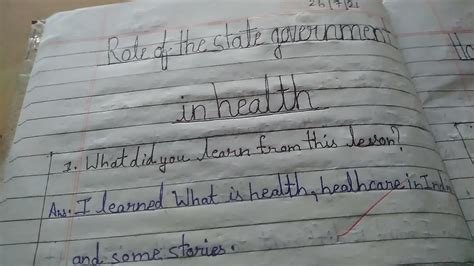 26/7/21
Role of the state government
in health
1. What did you learn from this lesson?
Ans: I learned What is health, healthcare in
and some stories.